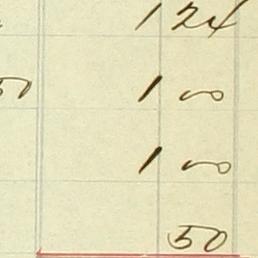 1 24
50 1 00
1 00
50